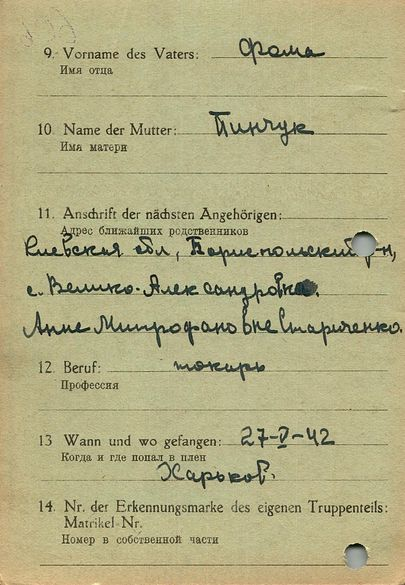 9. Vorname des Vaters: Фома
Имя отца
10. Name der Mutter: Пинчук
Имя матери
11. Anschrift der nächsten Angehörigen:
Адрес ближайших родственников
Киевская обл, Бориспольский р-н,
с. Велико-Александровка.
Анне Митрофановне Стариченко.
12. Beruf: токарь
Профессия
13 Wann und wo gefangen: 27-V-42
Когда и где попал в плен
Харьков.
14. Nr. der Erkennungsmarke des eigenen Truppenteils:
Matrikel-Nr.
Номер в собственной части